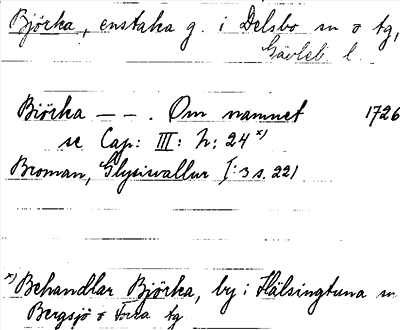 Björka, enstaka g. i Delsbo sn o tg,
Gävleb l.
Biörka — — . Om namnet 1726
se Cap: III: N: 24 x)
Broman, Glysisvallur I: 3 s. 221
x) Behandlar Björka, by i Hälsingtuna sn
Bergsjö o Forsa tg